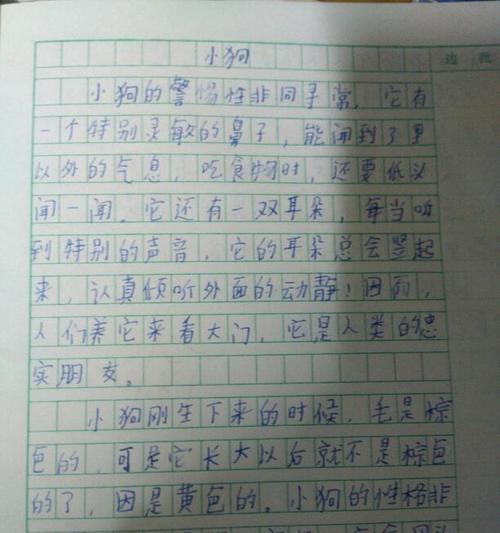 小狗
边 批
小狗的警惕性非同寻常，它有
一个特别灵敏的鼻子，能闻到了里
以外的气息，吃食物时，还要低头
闻一闻，它还有一双耳朵，每当听
到特别的声音，它的耳朵总会竖起
来，认真倾听外面的动静！因而，
人们养它来看大门，它是人类的忠
实朋友。
小狗刚生下来的时候，毛是棕
色的，可是它长大以后就不是棕色
的了，因是黄色的。小狗的性格非